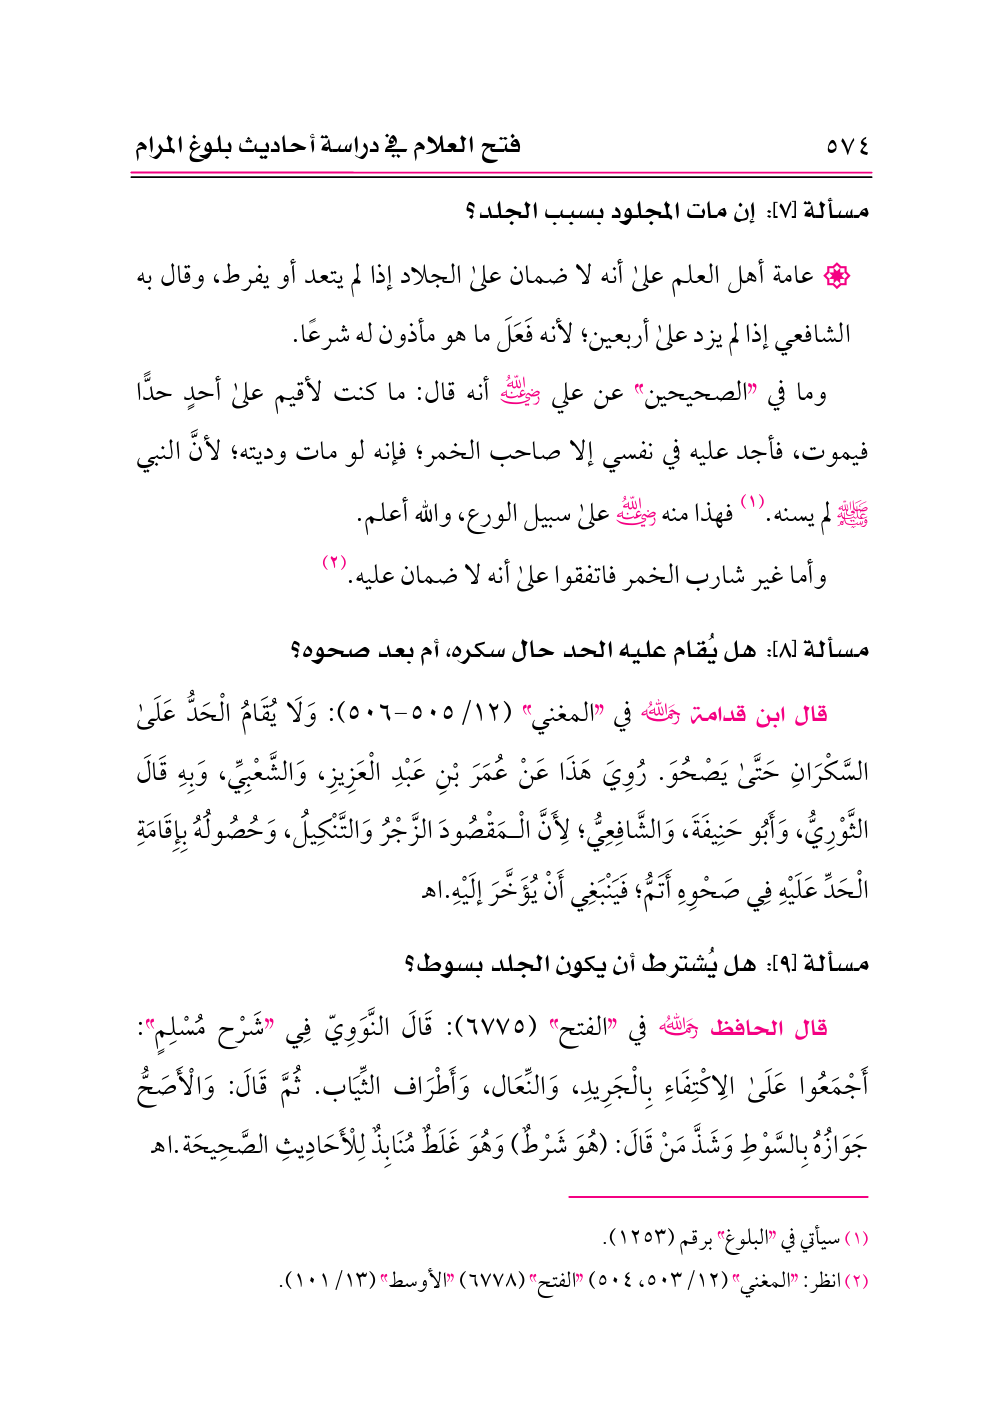 ٥٧٤ فتح العلام في دراسة أحاديث بلوغ المرام
مسألة [٧]: إن مات المجلود بسبب الجلد؟
عامة أهل العلم علىٰ أنه لا ضمان علىٰ الجلاد إذا لم يتعد أو يفرط، وقال به
الشافعي إذا لم يزد علىٰ أربعين؛ لأنه فَعَلَ ما هو مأذون له شرعًا.
وما في "الصحيحين" عن علي رضي الله عنه أنه قال: ما كنت لأقيم علىٰ أحدٍ حدًّا
فيموت، فأجد عليه في نفسي إلا صاحب الخمر؛ فإنه لو مات وديته؛ لأنَّ النبي
ﷺ لم يسنه.(١) فهذا منه رضي الله عنه علىٰ سبيل الورع، والله أعلم.
وأما غير شارب الخمر فاتفقوا علىٰ أنه لا ضمان عليه.(٢)
مسألة [٨]: هل يُقام عليه الحد حال سكره، أم بعد صحوه؟
قال ابن قدامة رحمه الله في "المغني" (١٢/ ٥٠٥-٥٠٦): وَلَا يُقَامُ الْحَدُّ عَلَىٰ
السَّكْرَانِ حَتَّىٰ يَصْحُوَ. رُوِيَ هَذَا عَنْ عُمَرَ بْنِ عَبْدِ الْعَزِيزِ، وَالشَّعْبِيِّ، وَبِهِ قَالَ
الثَّوْرِيُّ، وَأَبُو حَنِيفَةَ، وَالشَّافِعِيُّ؛ لِأَنَّ الْـمَقْصُودَ الزَّجْرُ وَالتَّنْكِيلُ، وَحُصُولُهُ بِإِقَامَةِ
الْحَدِّ عَلَيْهِ فِي صَحْوِهِ أَتَمُّ؛ فَيَنْبَغِي أَنْ يُؤَخَّرَ إلَيْهِ.اهـ
مسألة [٩]: هل يُشترط أن يكون الجلد بسوط؟
قال الحافظ رحمه الله في "الفتح" (٦٧٧٥): قَالَ النَّوَوِيّ فِي "شَرْح مُسْلِمٍ":
أَجْمَعُوا عَلَىٰ الِاكْتِفَاءِ بِالْجَرِيدِ، وَالنِّعَال، وَأَطْرَاف الثِّيَاب. ثُمَّ قَالَ: وَالْأَصَحُّ
جَوَازُهُ بِالسَّوْطِ وَشَذَّ مَنْ قَالَ: (هُوَ شَرْطٌ) وَهُوَ غَلَطٌ مُنَابِذٌ لِلْأَحَادِيثِ الصَّحِيحَة.اهـ
(١) سيأتي في "البلوغ" برقم (١٢٥٣).
(٢) انظر: "المغني" (١٢/ ٥٠٣، ٥٠٤) "الفتح" (٦٧٧٨) "الأوسط" (١٣/ ١٠١).